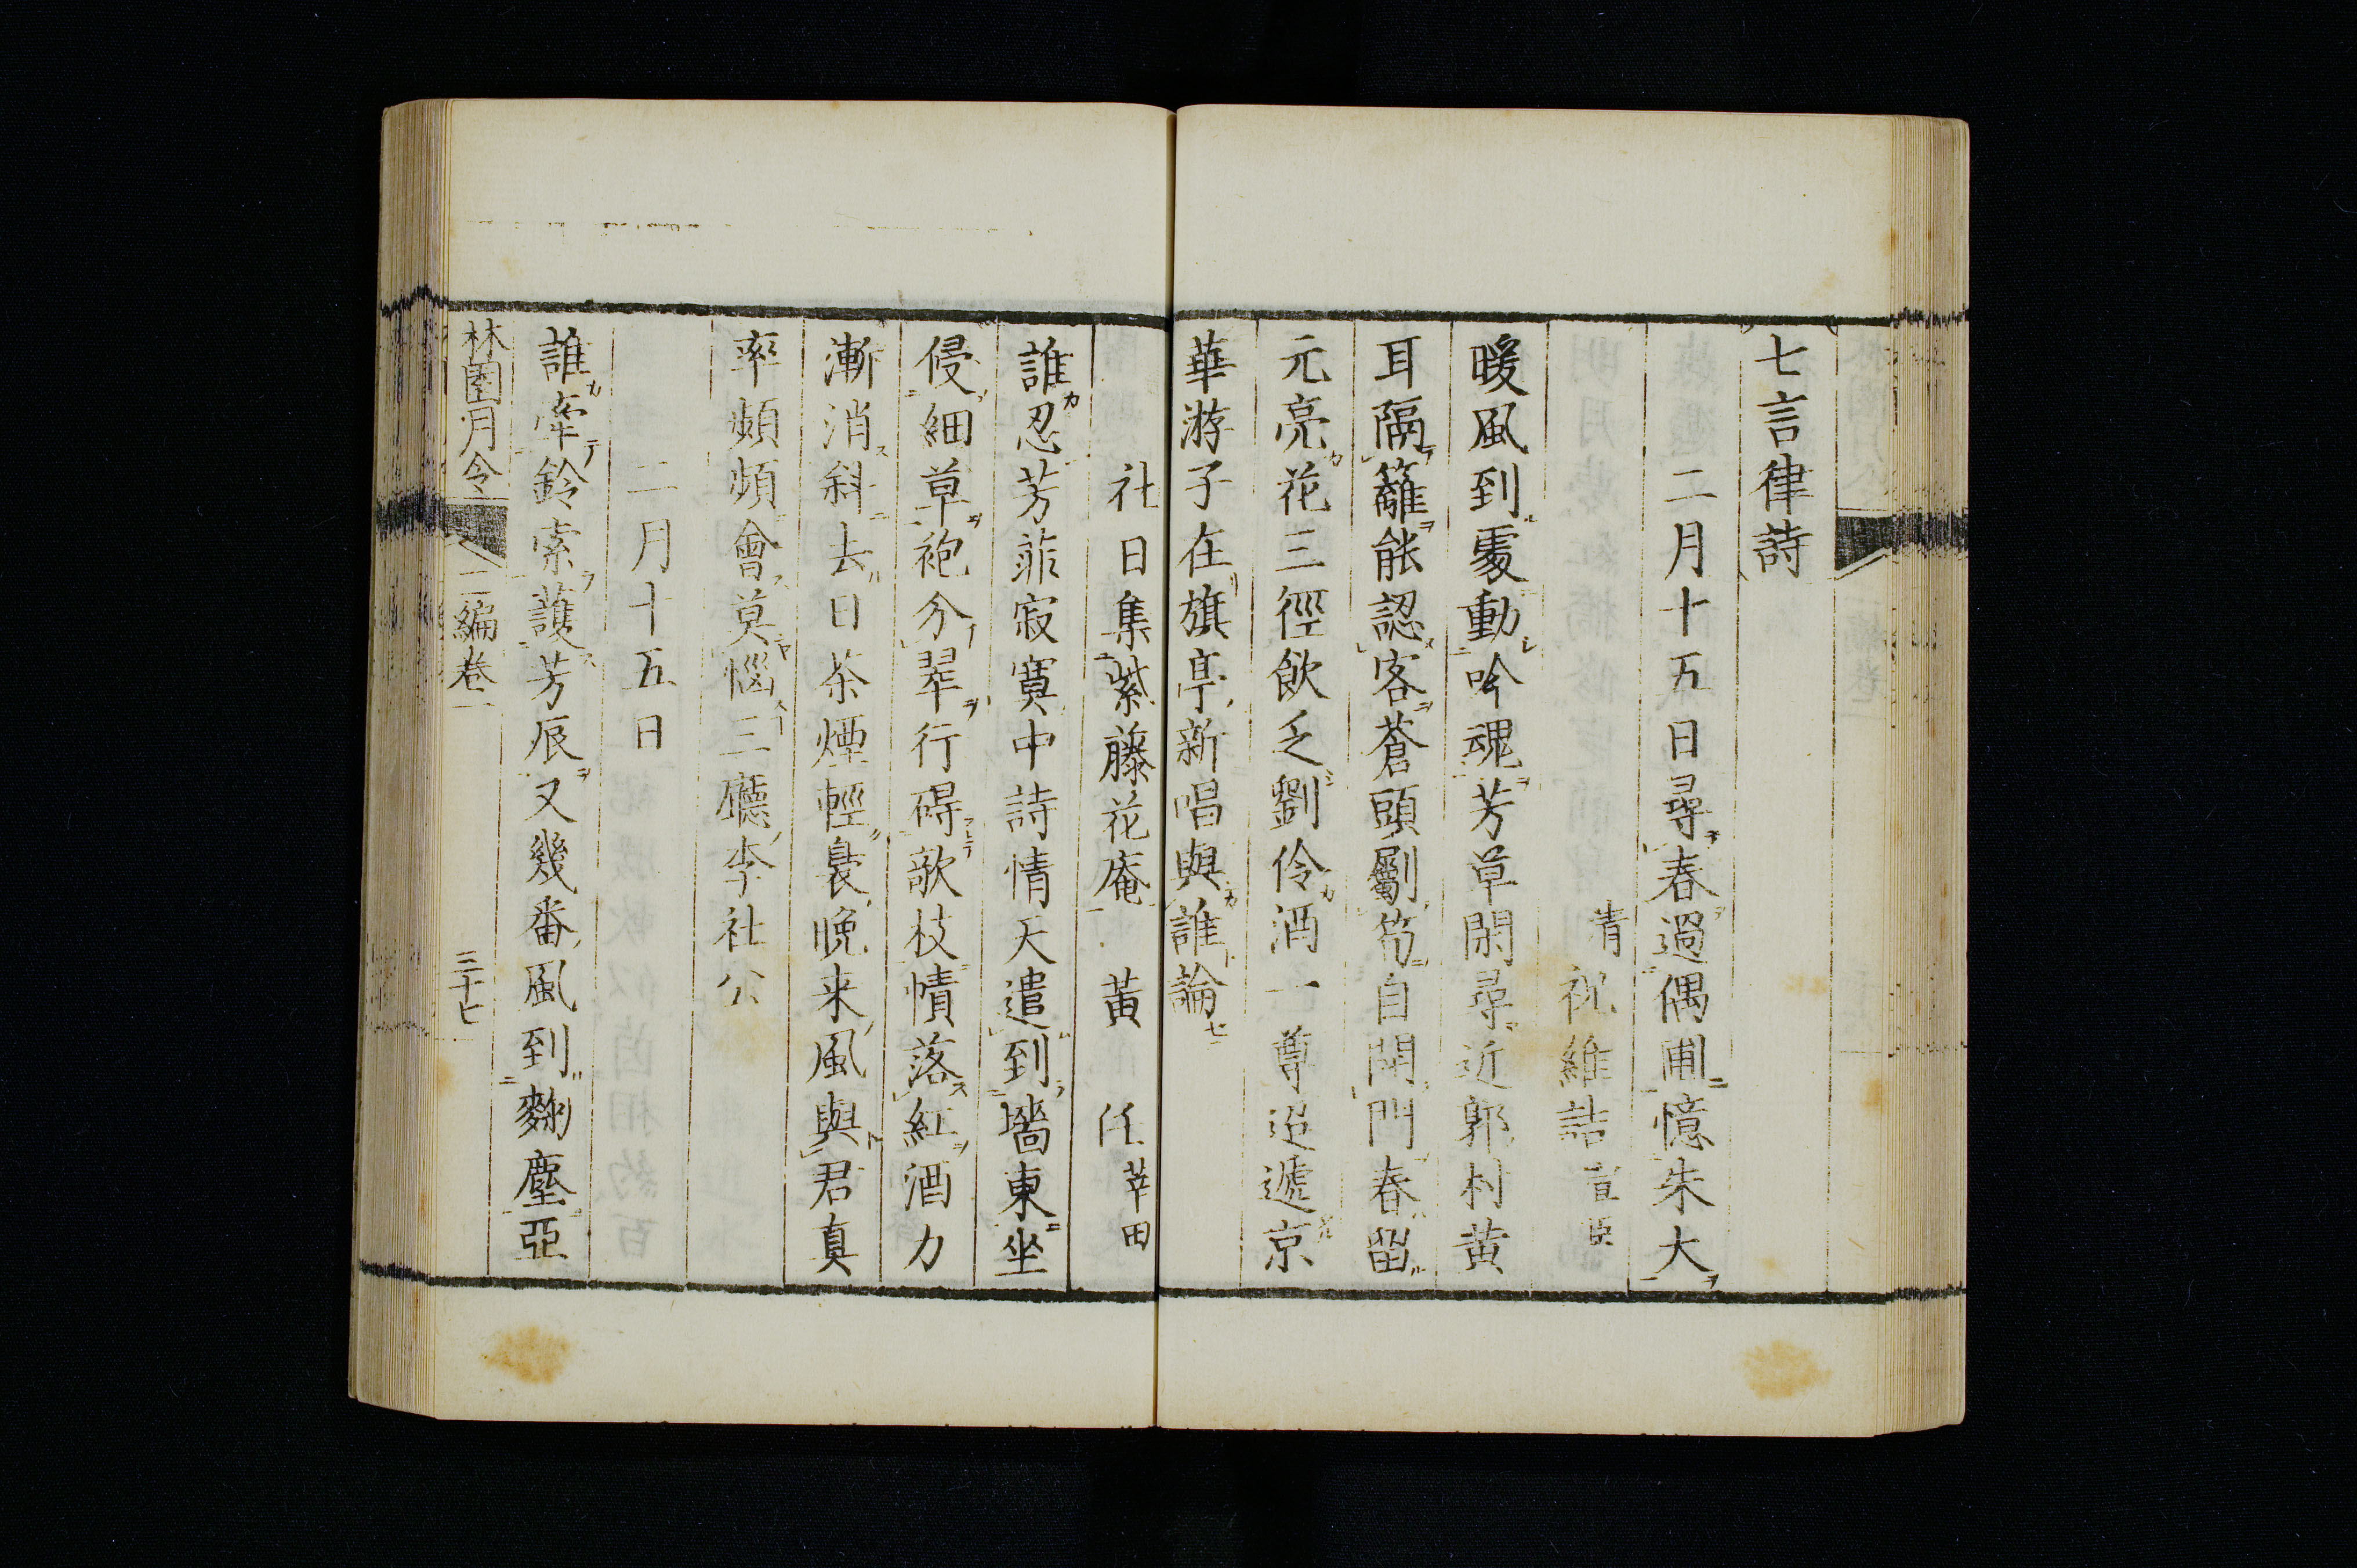 七言律詩
二月十五日尋春過偶圃憶朱大
清 祝維誥 宣臣
暖風到處動吟魂芳草閑尋近郭村黃
耳隔籬能認客蒼頭劚筍自開門春留
元亮花三徑飲乏劉伶酒一尊迢遞京
華游子在旗亭新唱與誰論
社日集紫藤花庵 黃 任 莘田
誰忍芳菲寂寞中詩情天遣到墻東坐
侵細草袍分翠行碍欹枝幘落紅酒力
漸消斜去日茶煙輕裊晚来風與君真
率頻頻會莫惱三廳李社公
二月十五日
誰牽鈴索護芳辰又幾番風到麴塵亞
林園月令 二編卷一 三十七